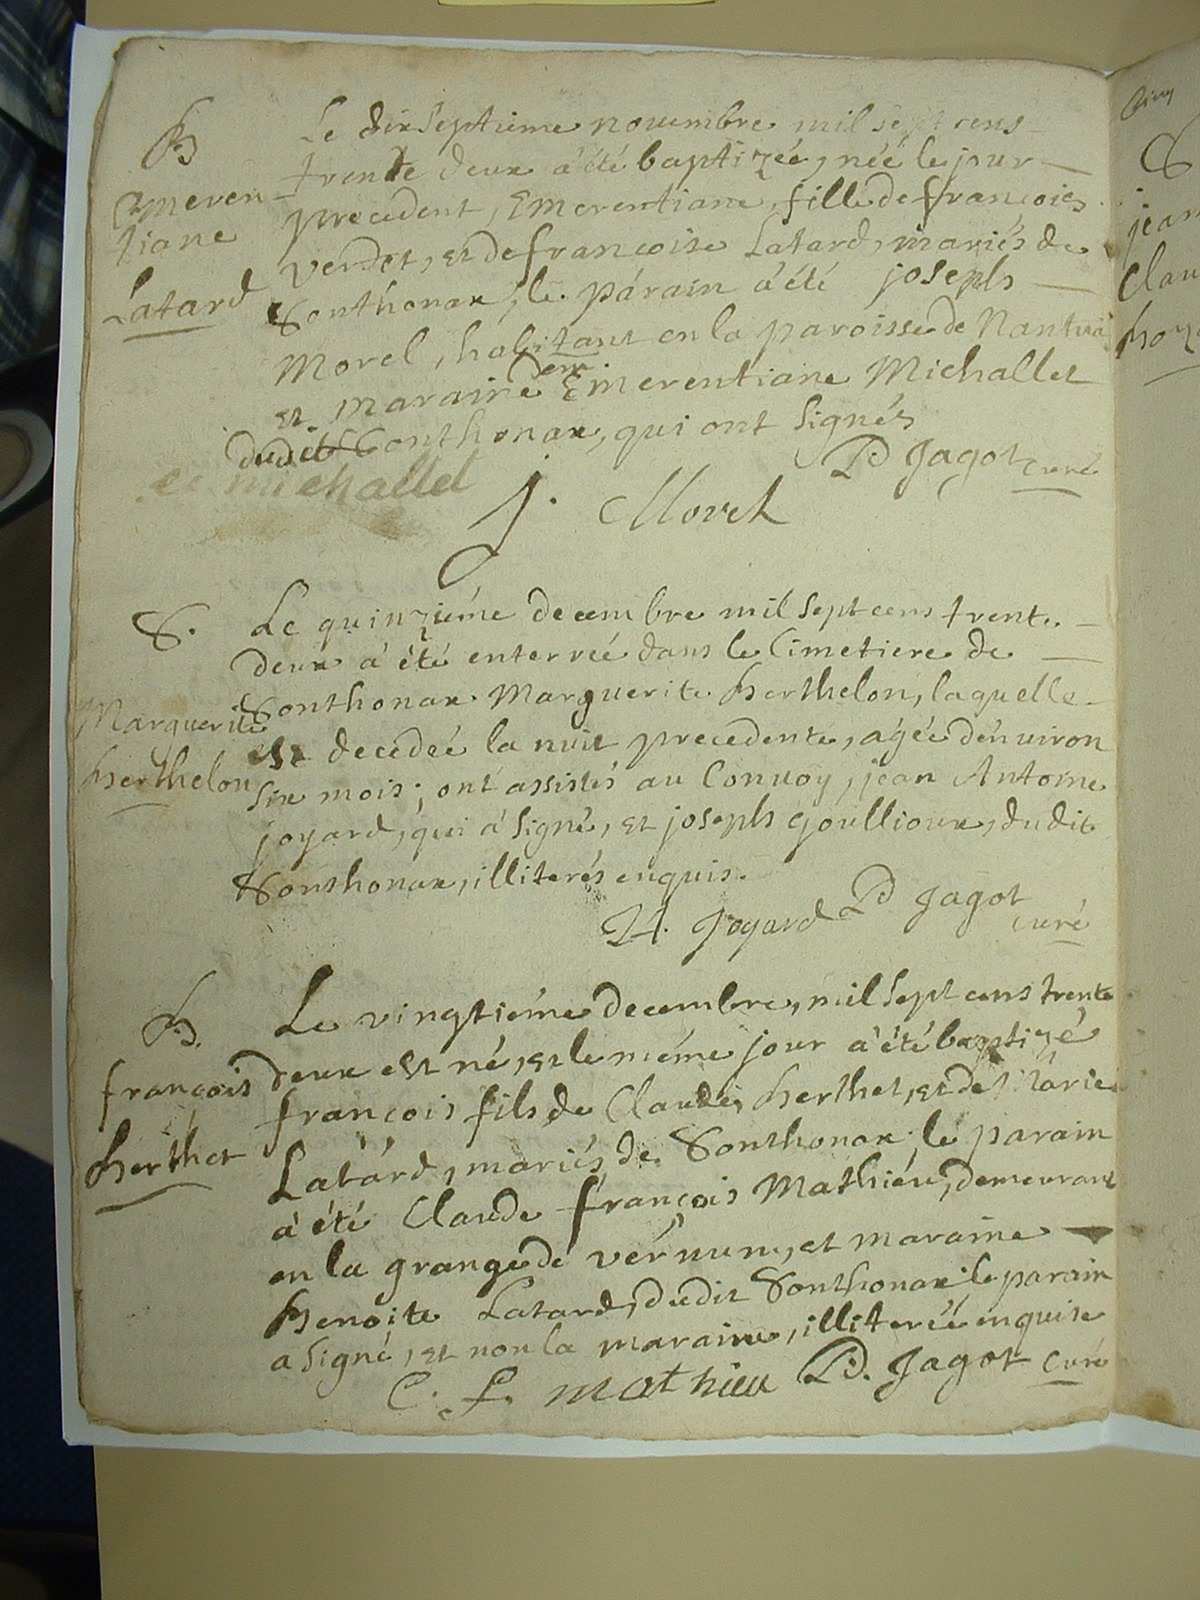 B
Emeren
tiane
Latard
Le dix septiéme novembre mil sept cens
trente deux a été baptizéé, néé le jour
precedent, Emerentiane, fille de françois
verdet, et de francoise Latard, mariés de
Sonthonax, le parain a été joseph
Morel, habitant en la paroisse de Nantua
et maraine Emerentiane Michallet
dudit Sonthonax, qui ont signés
P.D. Jagot curé
ee michallet
J. Morel
S.
Marguerite
Berthelon
Le quinziéme decembre mil sept cens trente
deux a été enterréé dans le Cimetiere de
Sonthonax Marguerite Berthelon, laquelle
est decedeé la nuit precedente, agéé d'environ
six mois; ont assistés au Convoy, jean Antoine
joyard, qui a signé, et joseph goullioux, dudit
Sonthonax, illiterés enquis.
A. Joyard P.D Jagot
curé
B.
françois
Berthet
Le vingtiéme decembre, mil sept cens trente
deux est né, et le méme jour a été baptizé
francois fils de Claude Berthet, et de Marie
Latárd, mariés de Sonthonax; le parain
a été Claude françois Mathiéu, demeurant
en la grange de vérnun, et maraine
Benoite Latard, dudit Sonthonax; le parain
a signé, et non la maraine, illiteréé enquise
C. f. mathieu P.D. Jagot curé
S
jean
Clau